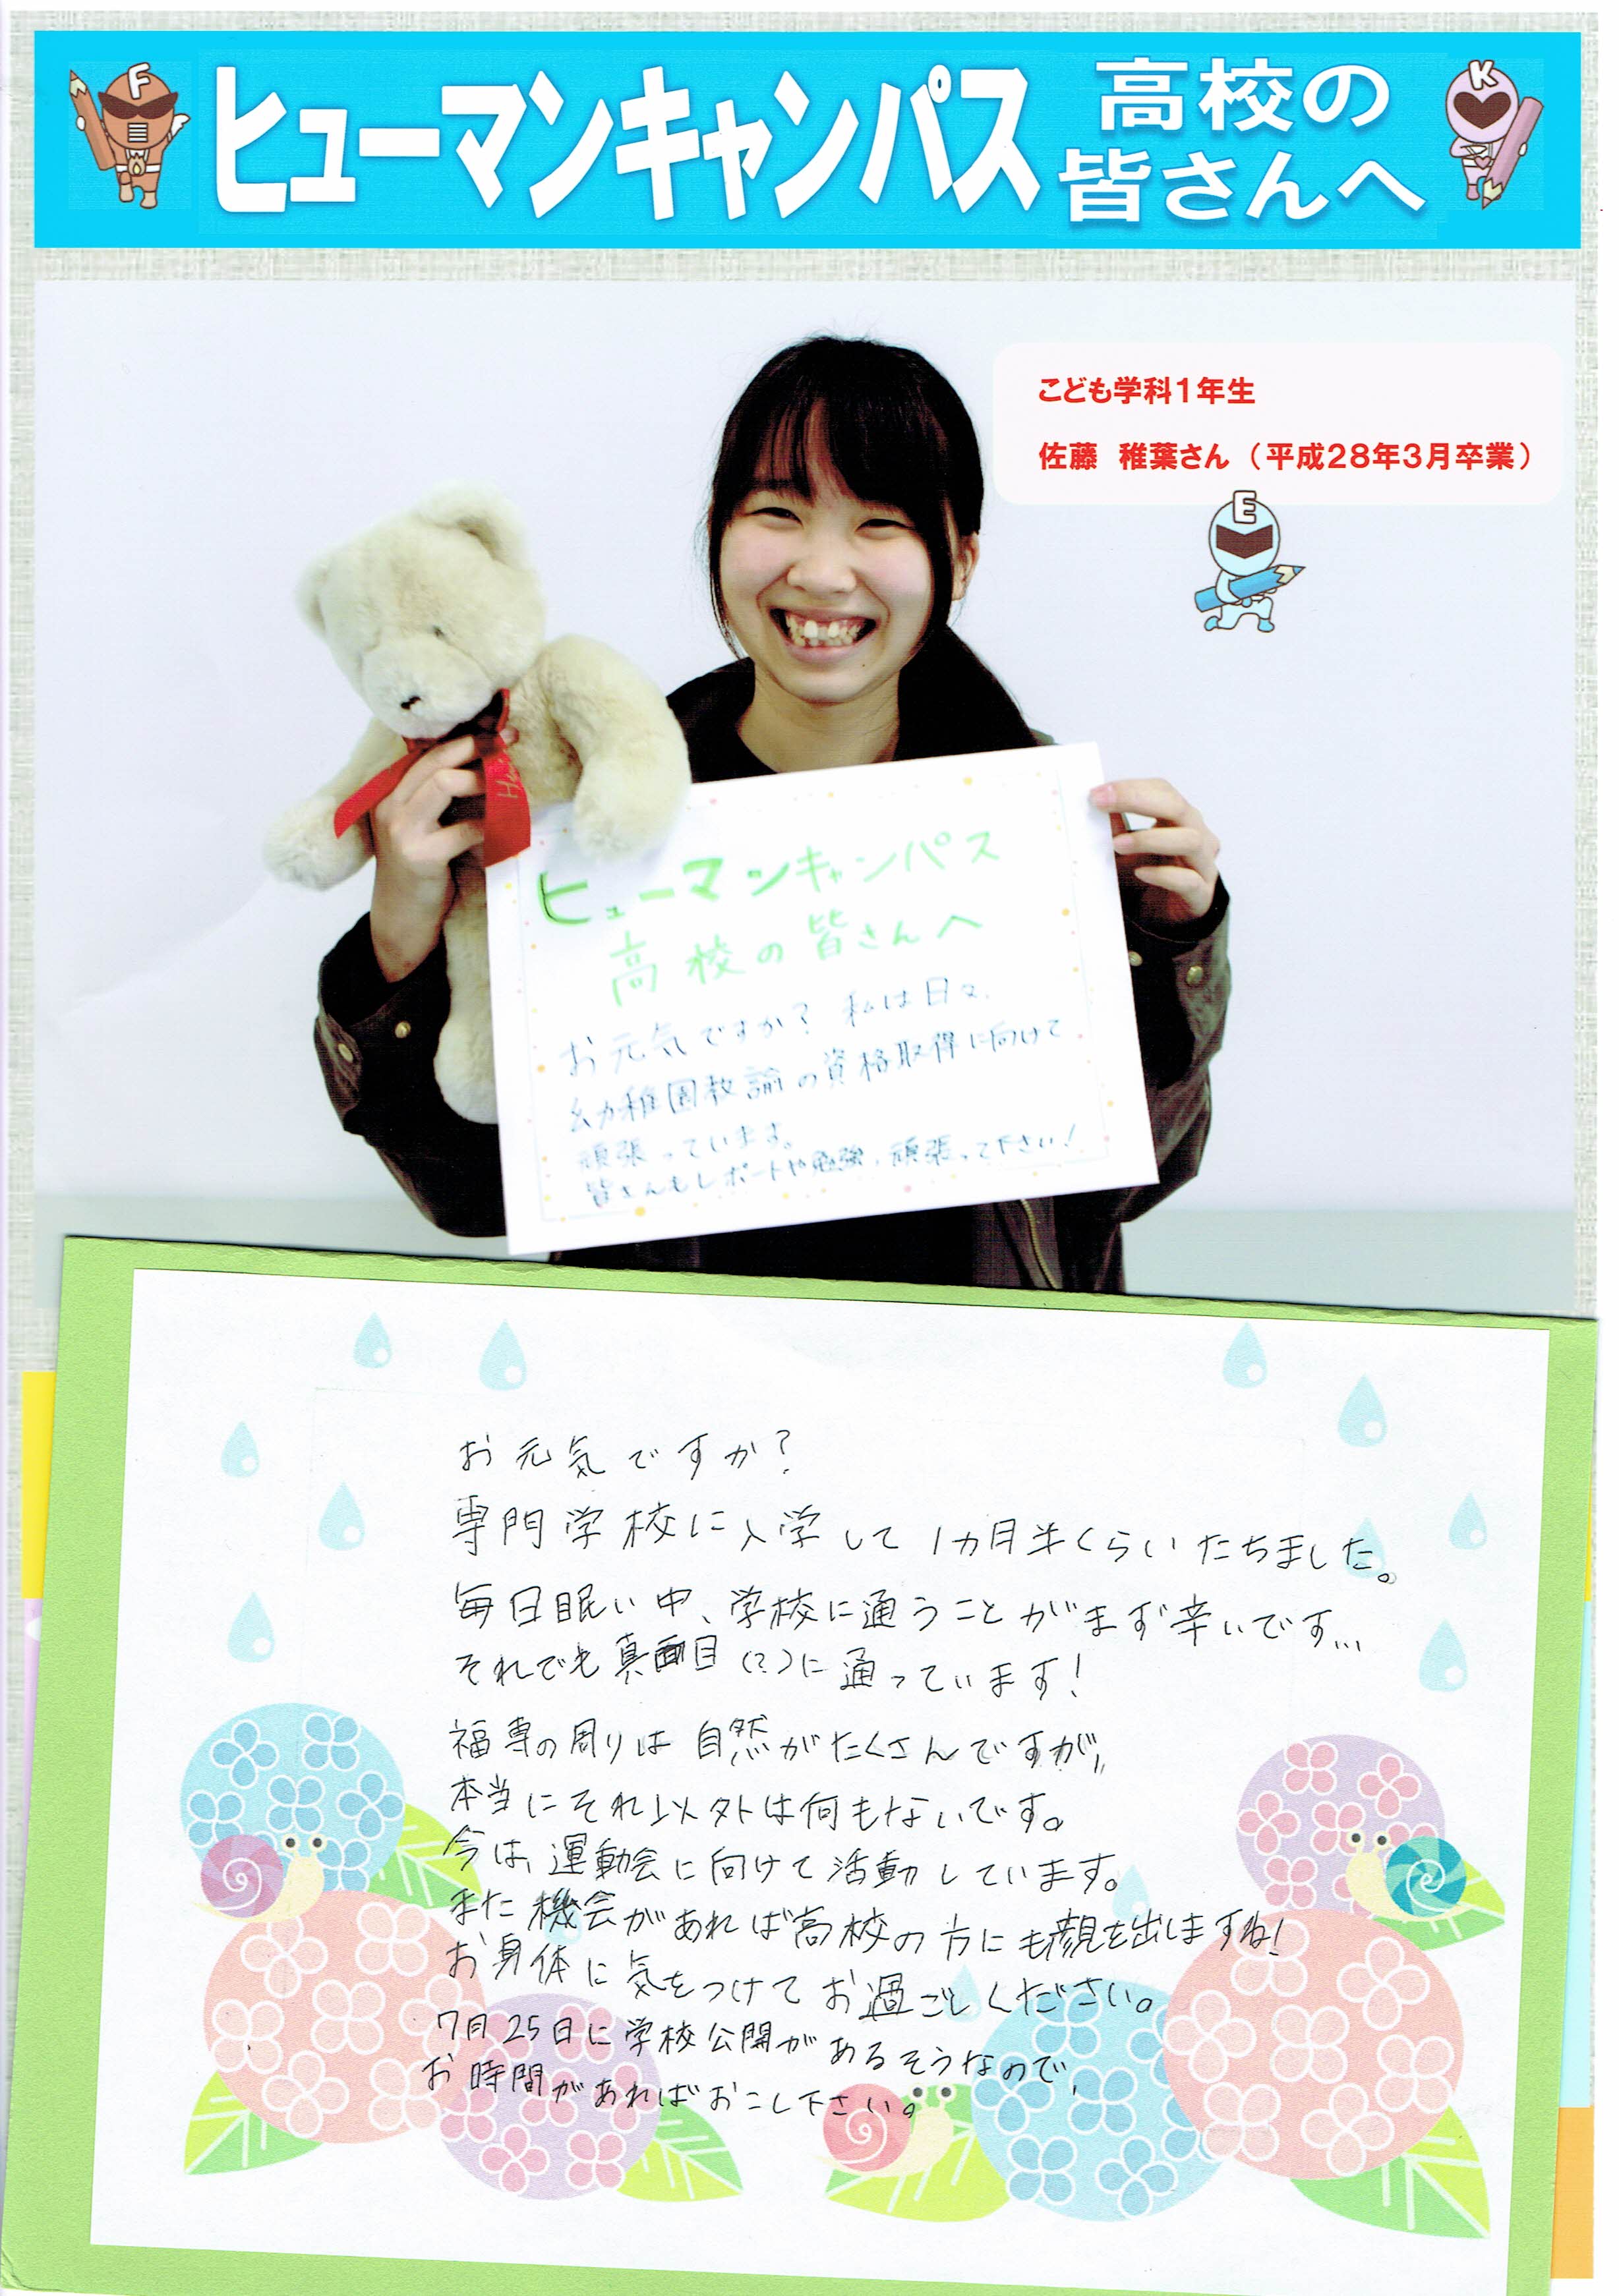 F
ヒューマンキャンパス
高校の
皆さんへ
K
こども学科1年生
佐藤 稚葉さん（平成28年3月卒業）
E
ヒューマンキャンパス
高校の皆さんへ
お元気ですか？ 私は日々、
幼稚園教諭の資格取得に向けて
頑張っています。
皆さんもレポートや勉強、頑張って下さい！
お元気ですか？
専門学校に入学して1カ月半くらいたちました。
毎日眠い中、学校に通うことがまず辛いです…
それでも真面目(？)に通っています！
福専の周りは自然がたくさんですが、
本当にそれ以外は何もないです。
今は、運動会に向けて活動しています。
また機会があれば高校の方にも顔を出しますね！
お身体に気をつけてお過ごしください。
7月25日に学校公開があるそうなので、
お時間があればおこし下さい。